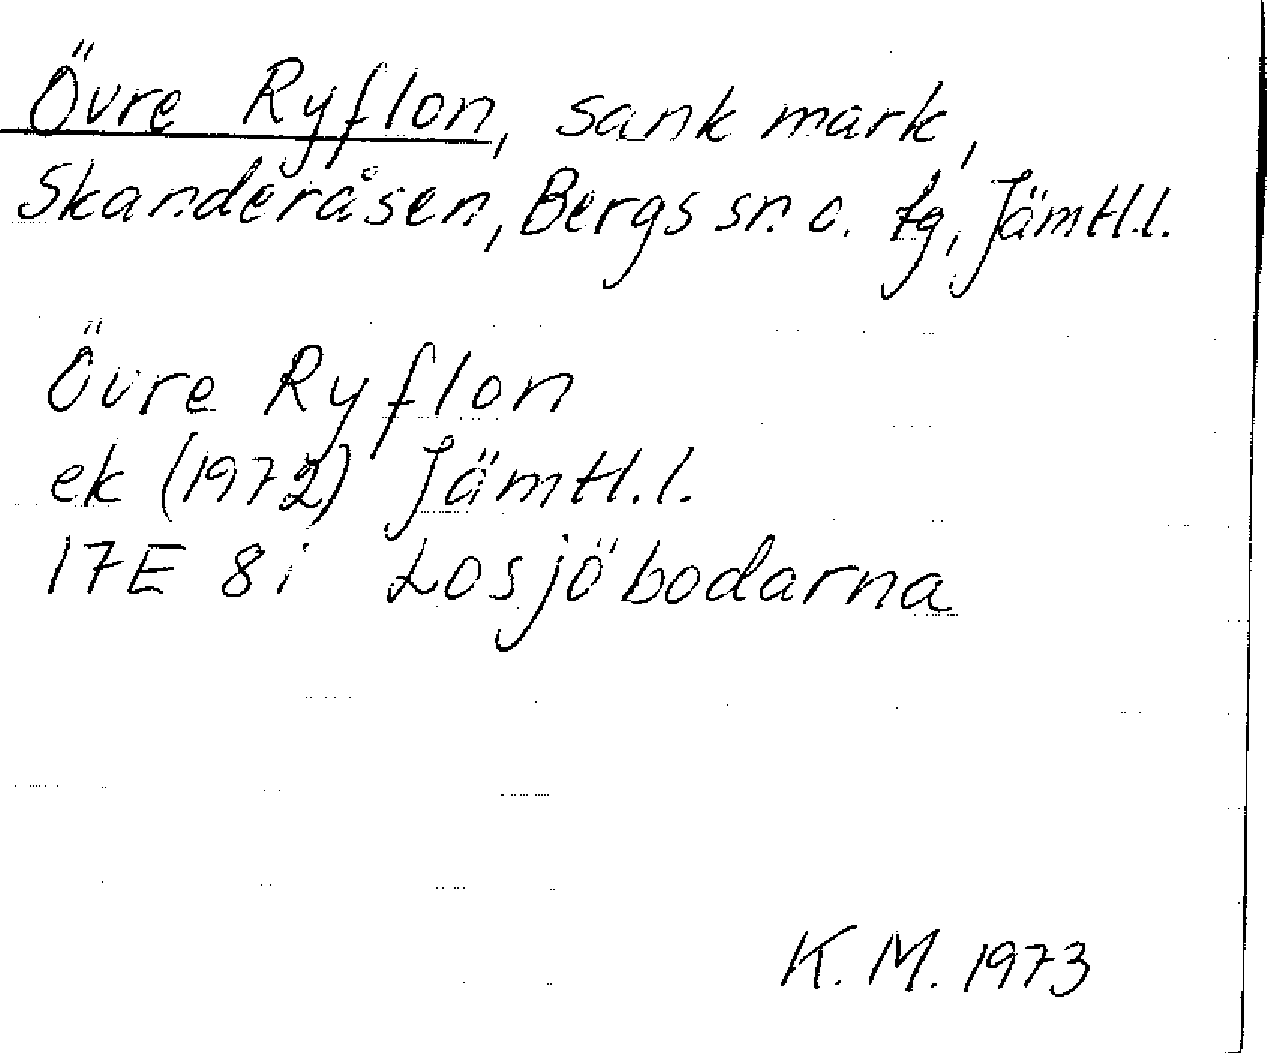 Övre Ryflon, sank mark,
Skanderåsen, Bergs sn o. tg, Jämtl.l.
Övre Ryflon
ek (1972) Jämtl.l.
17E 8i Losjöbodarna
K. M. 1973